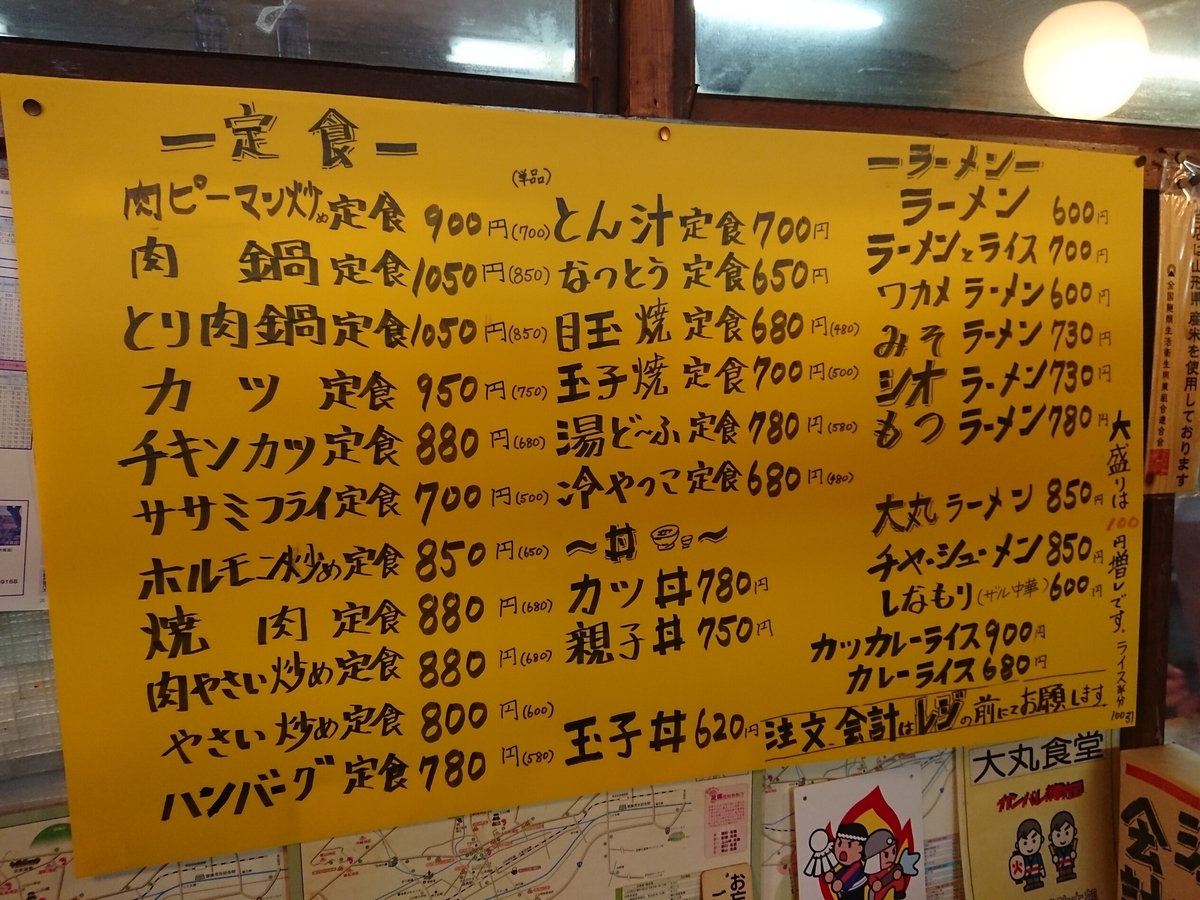 ー定食ー
(単品)
肉ピーマン炒め定食 900円(700)
肉 鍋 定食 1050円(850)
とり肉鍋定食 1050円(850)
カ ツ 定食 950円(750)
チキンカツ定食 880円(680)
ササミフライ定食 700円(500)
ホルモン炒め定食 850円(650)
焼 肉 定食 880円(680)
肉やさい炒め定食 880円(680)
やさい炒め定食 800円(600)
ハンバーグ定食 780円(580)
とん汁定食 700円
なっとう定食 650円
目玉焼定食 680円(480)
玉子焼定食 700円(500)
湯ど〜ふ定食 780円(580)
冷やっこ定食 680円(480)
〜丼〜
カツ丼 780円
親子丼 750円
玉子丼 620円
ーラーメンー
ラーメン 600円
ラーメンとライス 700円
ワカメラーメン 600円
みそラーメン 730円
シオラーメン 730円
もつラーメン 780円
大丸ラーメン 850円
チャーシューメン 850円
しなもり(ザル中華) 600円
カツカレーライス 900円
カレーライス 680円
大盛りは100円増しです。ライス半分100引
注文、会計はレジの前にてお願します
産米を使用しております
大丸食堂
火